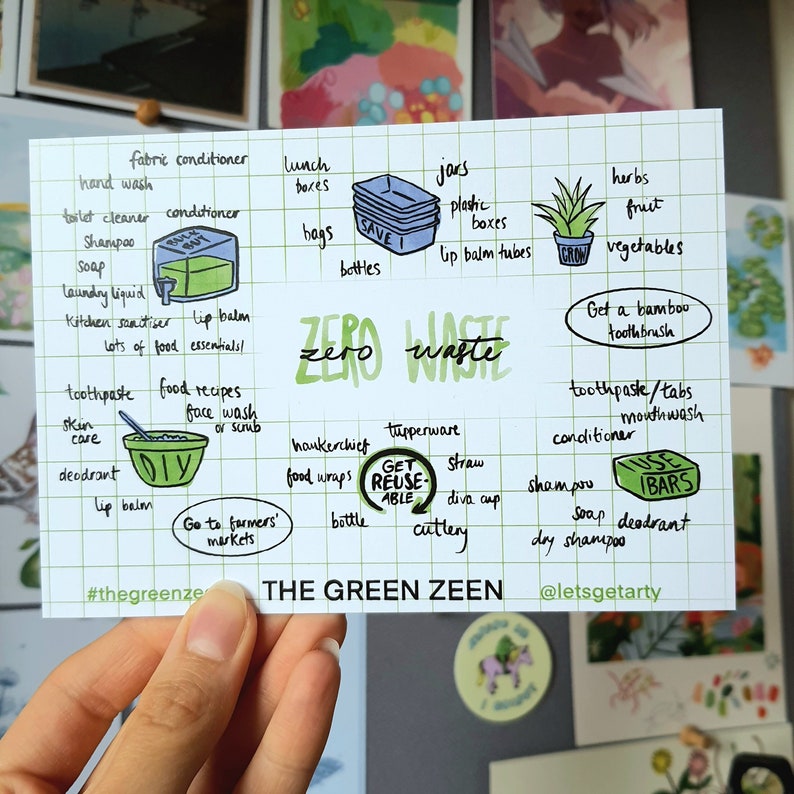 fabric conditioner
hand wash
toilet cleaner conditioner
shampoo
soap
laundry liquid
kitchen sanitiser lip balm
lots of food essentials!
BULK
BUY
lunch
boxes
bags
bottles
jars
plastic
boxes
lip balm tubes
SAVE !
herbs
fruit
vegetables
GROW
ZERO WASTE
zero waste
Get a bamboo
toothbrush
toothpaste food recipes
face wash
or scrub
skin
care
deodrant
lip balm
DIY
Go to farmers'
markets
tupperware
hankerchief
food wraps
bottle
straw
diva cup
cutlery
GET
REUSE-
ABLE
toothpaste/tabs
mouthwash
conditioner
shampoo
soap deodrant
dry shampoo
USE
BARS
#thegreenzee
THE GREEN ZEEN
@letsgetarty